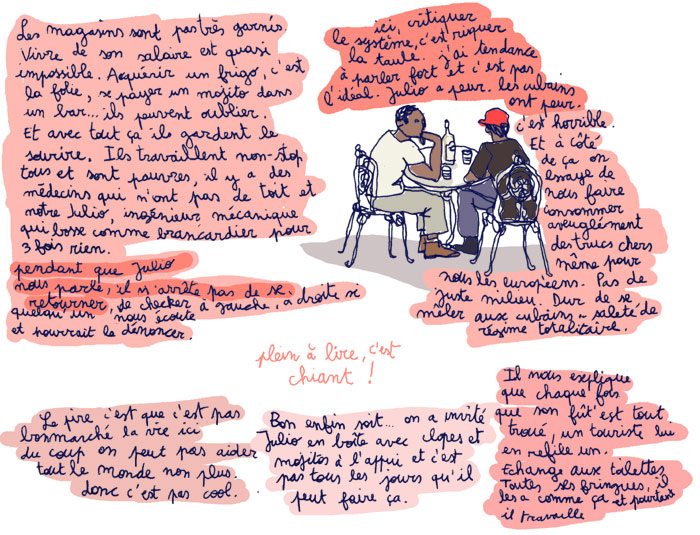 Les magasins sont pas très garnis.
Vivre de son salaire est quasi
impossible. Acquérir un frigo, c'est
la folie, se payer un mojito dans
un bar... ils peuvent oublier.
Et avec tout ça ils gardent le
sourire. Ils travaillent non-stop
tous et sont pauvres, il y a des
médecins qui n'ont pas de toit et
notre Julio, ingénieur mécanique
qui bosse comme brancardier pour
3 fois rien.
pendant que Julio
nous parle, il n'arrête pas de se
retourner, de checker à gauche, à droite si
quelqu'un nous écoute
et pourrait le dénoncer.
ici, critiquer
le système, c'est risquer
la taule. j'ai tendance
à parler fort et c'est pas
l'idéal. Julio a peur. les cubains
ont peur.
c'est horrible.
Et à côté
de ça on
essaye de
nous faire
consommer
aveuglément
des trucs chers
même pour
nous les européens. Pas de
juste milieu. Dur de se
mêler aux cubains - saleté de
régime totalitaire.
plein à lire, c'est
chiant !
Le pire c'est que c'est pas
bonmarché la vie ici
du coup on peut pas aider
tout le monde non plus.
donc c'est pas cool.
Bon enfin soit... on a invité
Julio en boîte avec clopes et
mojitos à l'appui et c'est
pas tous les jours qu'il
peut faire ça.
Il nous explique
que chaque fois
que son fût est tout
troué, un touriste lui
en refile un.
Echange aux toilettes
Toutes ses fringues, il
les a comme ça et pourtant
il travaille